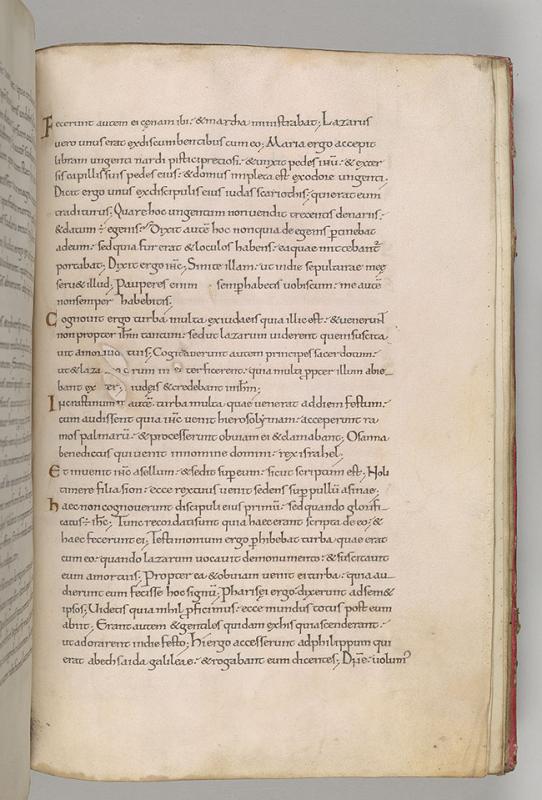 Fecerunt autem ei cenam ibi. & martha ministrabat; Lazarus
vero unus erat ex discumbentibus cum eo; Maria ergo accepit
libram ungenti nardi pistici preciosi. & unxit pedes ihu. & exter
sis capillis suis pedes eius. & domus impleta est ex odore ungenti.
Dicit ergo unus ex discipulis eius iudas scariothis. qui erat eum
traditurus; Quare hoc ungentum non vendit trecentis denariis.
& datum egenis. Dixit autē hoc non quia de egenis ptinebat
ad eum. sed quia fur erat & loculos habens. ea quae mittebant
portabat; Dixit ergo ihc; Sinite illam. ut in die sepulturae meę
servę illud; Pauperes enim semp habetis vobiscum. me autē
non semper habebitis;
Cognovit ergo turba multa ex iudaeis quia illic est. & venerunt
non propter ihm tantum. sed ut lazarum viderent quem suscita
vit a mortuis; Cogitaverunt autem principes sacerdotum.
ut & laza rum interficerent. quia multi ppter illum abie
bant ex iudeis & credebant in ihm;
In crastinum autē turba multa quae venerat ad diem festum.
cum audissent quia venit ihc hierosolymam. acceperunt ra
mos palmarū. & processerunt obviam ei & clamabant; Osanna
benedictus qui venit in nomine domini. rex israhel.
Et invenit ihc asellum. & sedit sup eum. sicut scriptum est; Noli
timere filia sion. ecce rex tuus venit sedens sup pullū asinae;
haec non cognoverunt discipuli eius primū. sed quando glorifi
catus ÷ ihc; Tunc recordati sunt quia haec erant scripta de eo. &
haec fecerunt ei; Testimonium ergo phibebat turba. quae erat
cum eo. quando lazarum vocavit de monumento. & suscitavit
eum a mortuis; Propter ea & obviam venit ei turba. quia au
dierunt eum fecisse hoc signū; Pharisęi ergo dixerunt ad sem&
ipsos; Videtis quia nihil pficimus. ecce mundus totus post eum
abiit; Erant autem & gentiles quidam ex his qui ascenderant.
ut adorarent in die festo; Hi ergo accesserunt ad philippum qui
erat a bethsaida galileae. & rogabant eum dicentes; Dñe volum